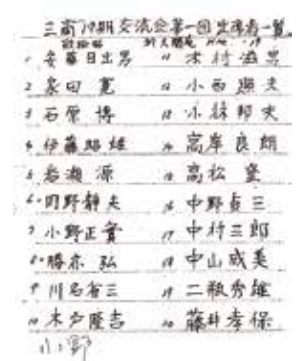 三商19期交流会第一回出席者一覧
1 安藤日出男 11 木村滋男
2 泉田寛 12 小西照夫
3 石原博 13 小林邦夫
4 伊藤昭雄 14 高岸良朗
5 岩瀬源 15 高松登
6 岡野静夫 16 中野貞三
7 小野正實 17 中村三郎
8 勝亦弘 18 中山成美
9 川名省三 19 二瓶秀雄
10 木戸隆吉 20 藤井孝保